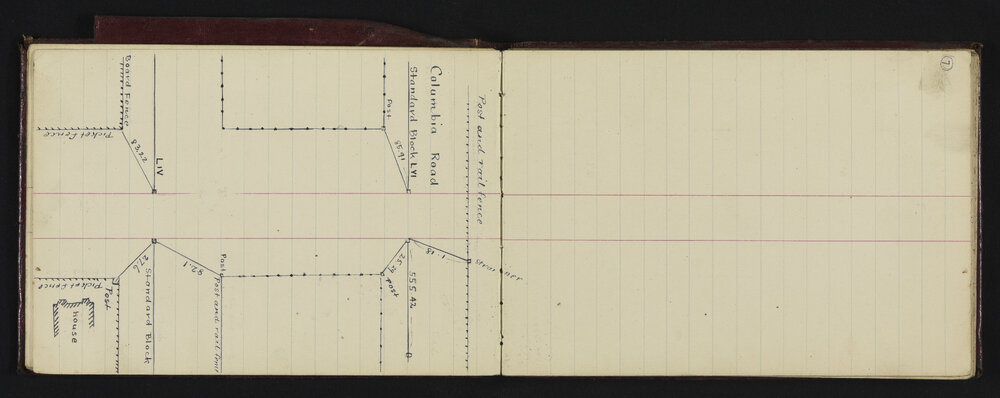 7
Post and rail fence
Columbia Road
Standard Block LVI
Post
85.91
Board Fence
Picket Fence
83.22
LIV
555.42
post
Post
Post and rail fence
92.1
Standard Block
Picket Fence
Post
house